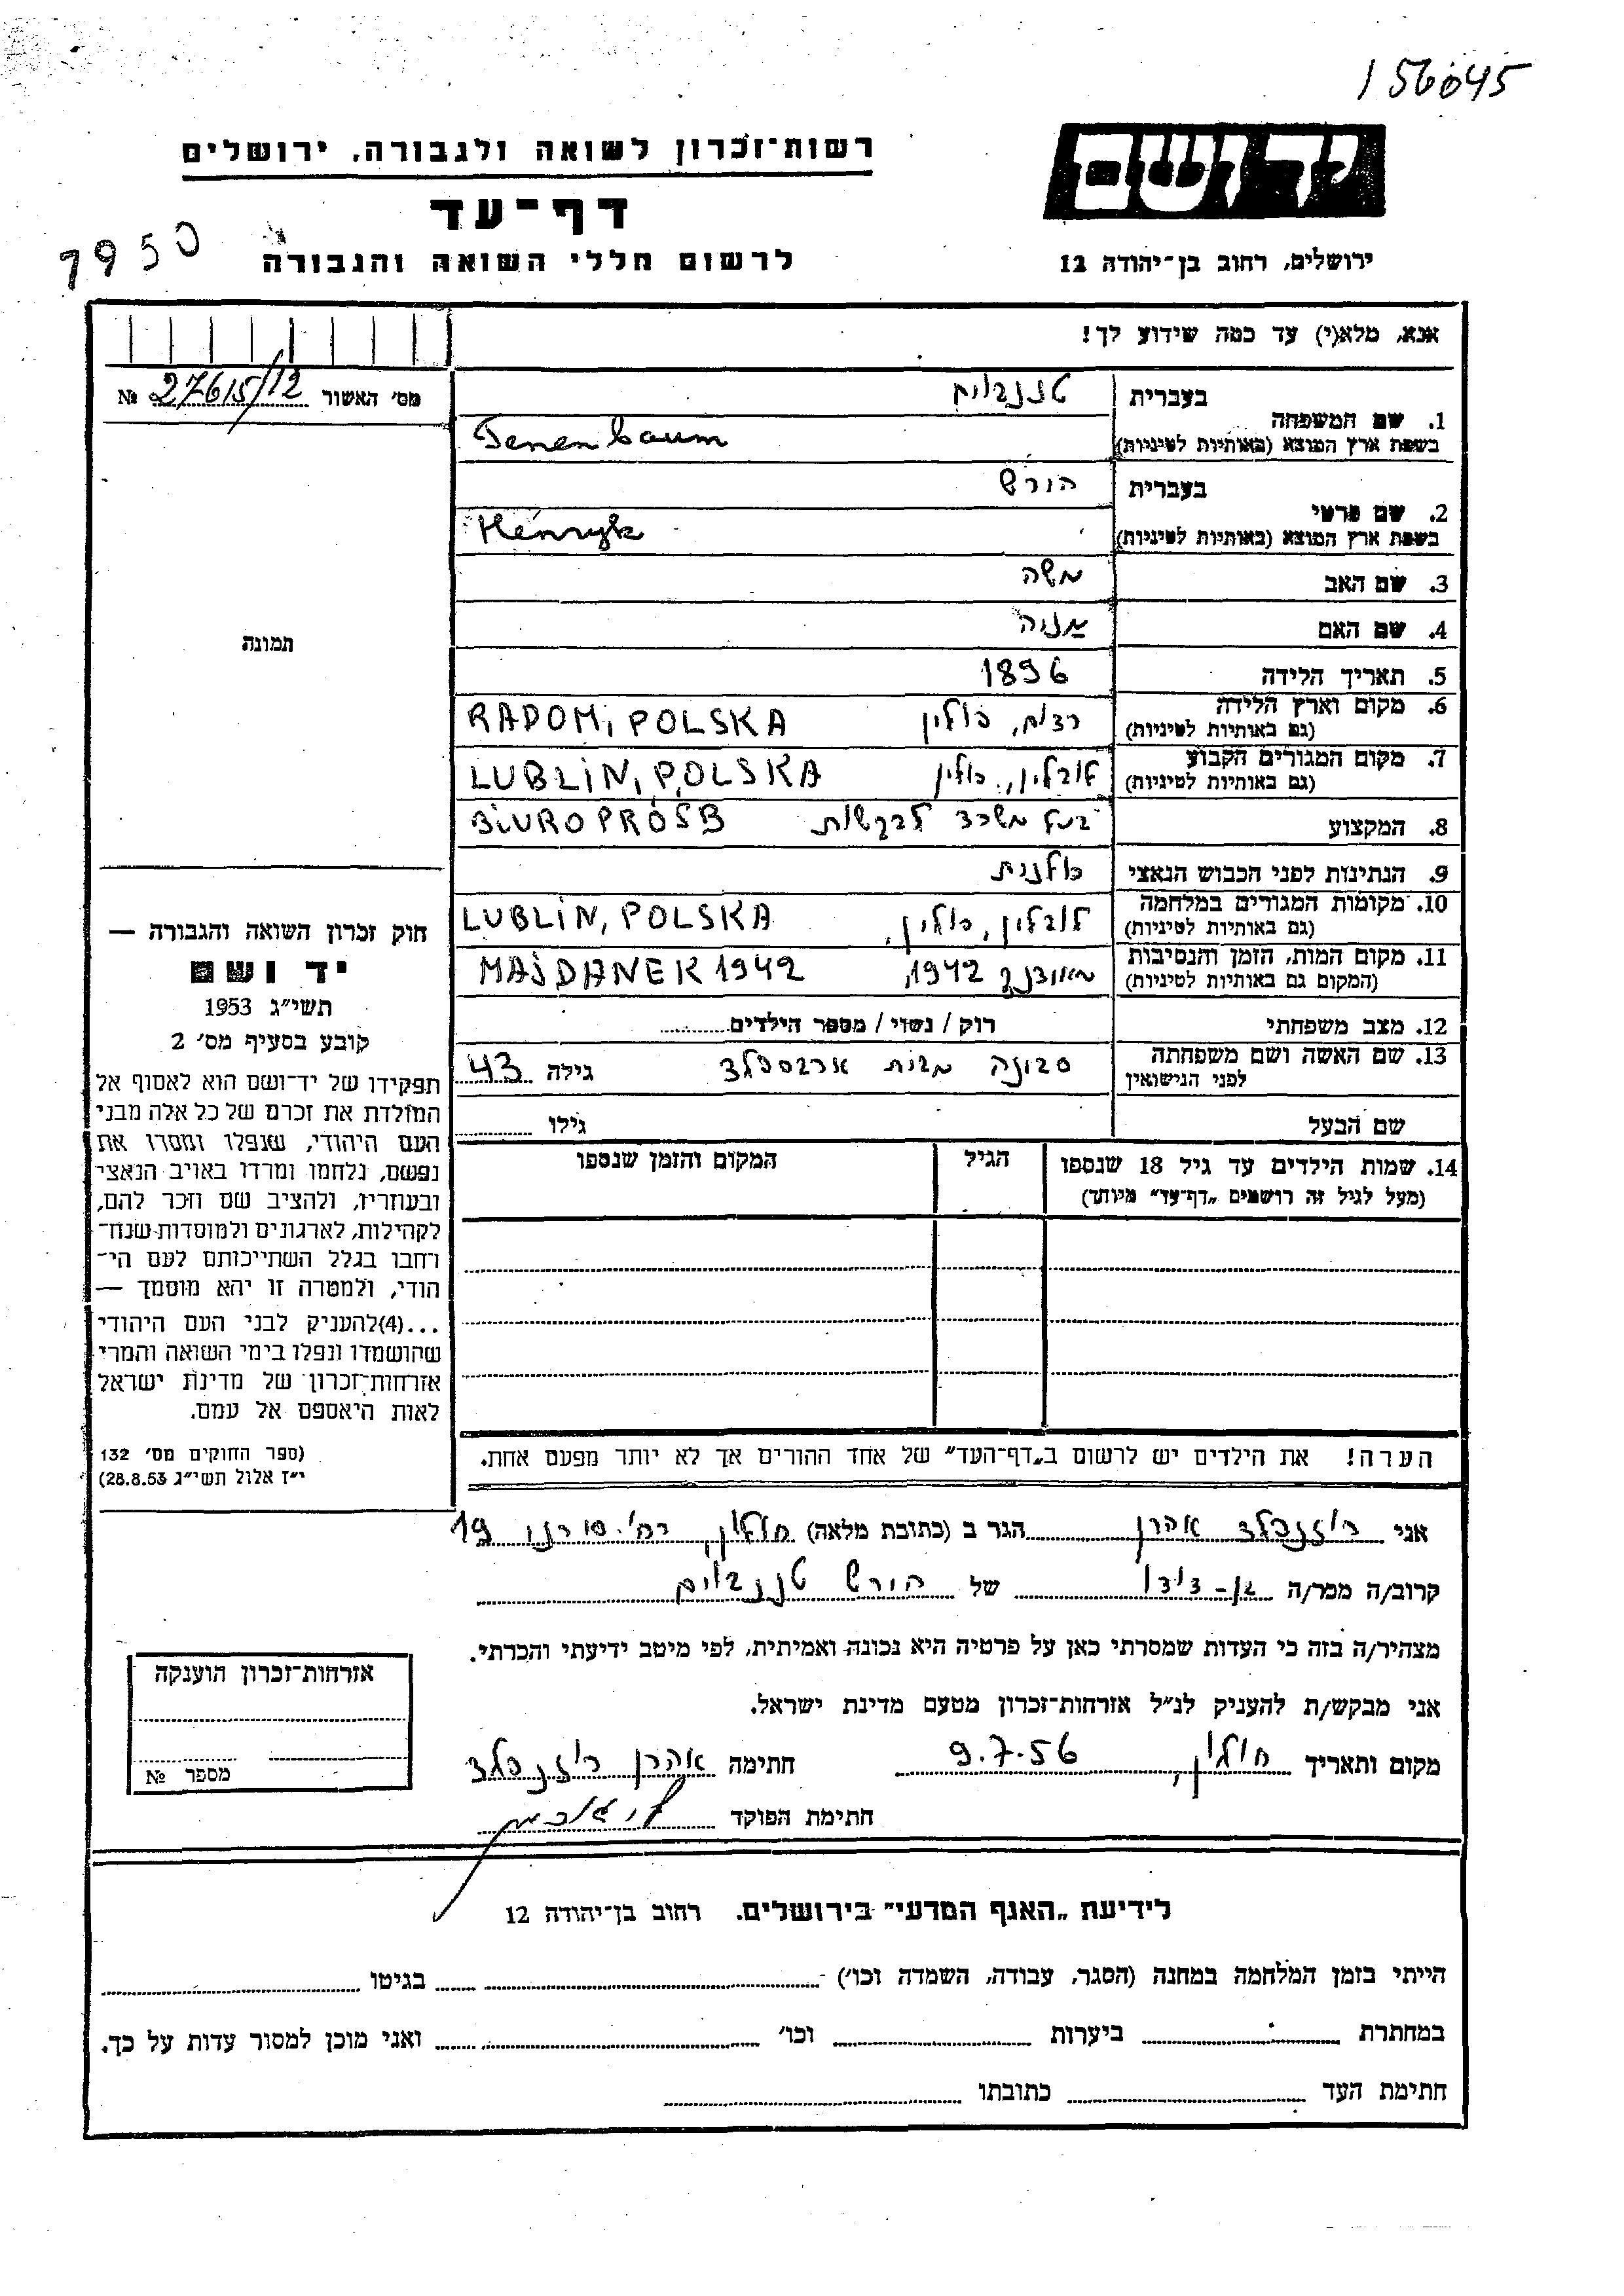 156045
יד ושם
רשות־זכרון לשואה ולגבורה, ירושלים
דף־עד
לרשום חללי השואה והגבורה
ירושלים, רחוב בן־יהודה 12
1950
אנא, מלא(י) עד כמה שידוע לך!
מס׳ האשור 27615/12 №
1. שם המשפחה
בעברית טננבוים
בשפת ארץ המוצא (באותיות לטיניות) Tenenbaum
2. שם פרטי
בעברית הורש
בשפת ארץ המוצא (באותיות לטיניות) Henryk
3. שם האב משה
4. שם האם
5. תאריך הלידה 1896
6. מקום וארץ הלידה
(גם באותיות לטיניות) רדום, פולין RADOM, POLSKA
7. מקום המגורים הקבוע
(גם באותיות לטיניות) לובלין, פולין LUBLIN, POLSKA
8. המקצוע בעל משרד לבקשות BIURO PRÓSB
9. הנתינות לפני הכבוש הנאצי פולנית
10. מקומות המגורים במלחמה
(גם באותיות לטיניות) לובלין, פולין, LUBLIN, POLSKA
11. מקום המות, הזמן והנסיבות
(המקום גם באותיות לטיניות) מאידנק 1942, MAJDANEK 1942
12. מצב משפחתי רוק / נשוי / מספר הילדים
13. שם האשה ושם משפחתה
לפני הנישואין מבית גילה 43
שם הבעל גילו
14. שמות הילדים עד גיל 18 שנספו
(מעל לגיל זה רושמים „דף־עד״ מיוחד)
הגיל
המקום והזמן שנספו
הערה! את הילדים יש לרשום ב„דף־העד״ של אחד ההורים אך לא יותר מפעם אחת.
תמונה
חוק זכרון השואה והגבורה —
יד ושם
תשי״ג 1953
קובע בסעיף מס׳ 2
תפקידו של יד־ושם הוא לאסוף אל
המולדת את זכרם של כל אלה מבני
העם היהודי, שנפלו ומסרו את
נפשם, נלחמו ומרדו באויב הנאצי
ובעוזריו, ולהציב שם וזכר להם,
לקהילות, לארגונים ולמוסדות שנח־
רחבו בגלל השתייכותם לעם הי־
הודי, ולמטרה זו יהא מוסמך —
...(4)להעניק לבני העם היהודי
שהושמדו ונפלו בימי השואה והמרי
אזרחות־זכרון של מדינת ישראל
לאות היאספם אל עמם.
(ספר החוקים מס׳ 132
י״ז אלול תשי״ג 28.8.53)
אני רוזנפלד אהרן הגר ב (כתובת מלאה) חולון, רח׳ 19
קרוב/ה מכר/ה בן-דודו של הורש טננבוים
מצהיר/ה בזה כי העדות שמסרתי כאן על פרטיה היא נכונה ואמיתית, לפי מיטב ידיעתי והכרתי.
אני מבקש/ת להעניק לנ״ל אזרחות־זכרון מטעם מדינת ישראל.
מקום ותאריך חולון, 9.7.56 חתימה אהרן רוזנפלד
חתימת הפוקד
אזרחות־זכרון הוענקה
מספר №
לידיעת „האגף המדעי״ בירושלים. רחוב בן־יהודה 12
הייתי בזמן המלחמה במחנה (הסגר, עבודה, השמדה וכו׳) בגיטו
במחתרת ביערות וכו׳ ואני מוכן למסור עדות על כך.
חתימת העד כתובתו